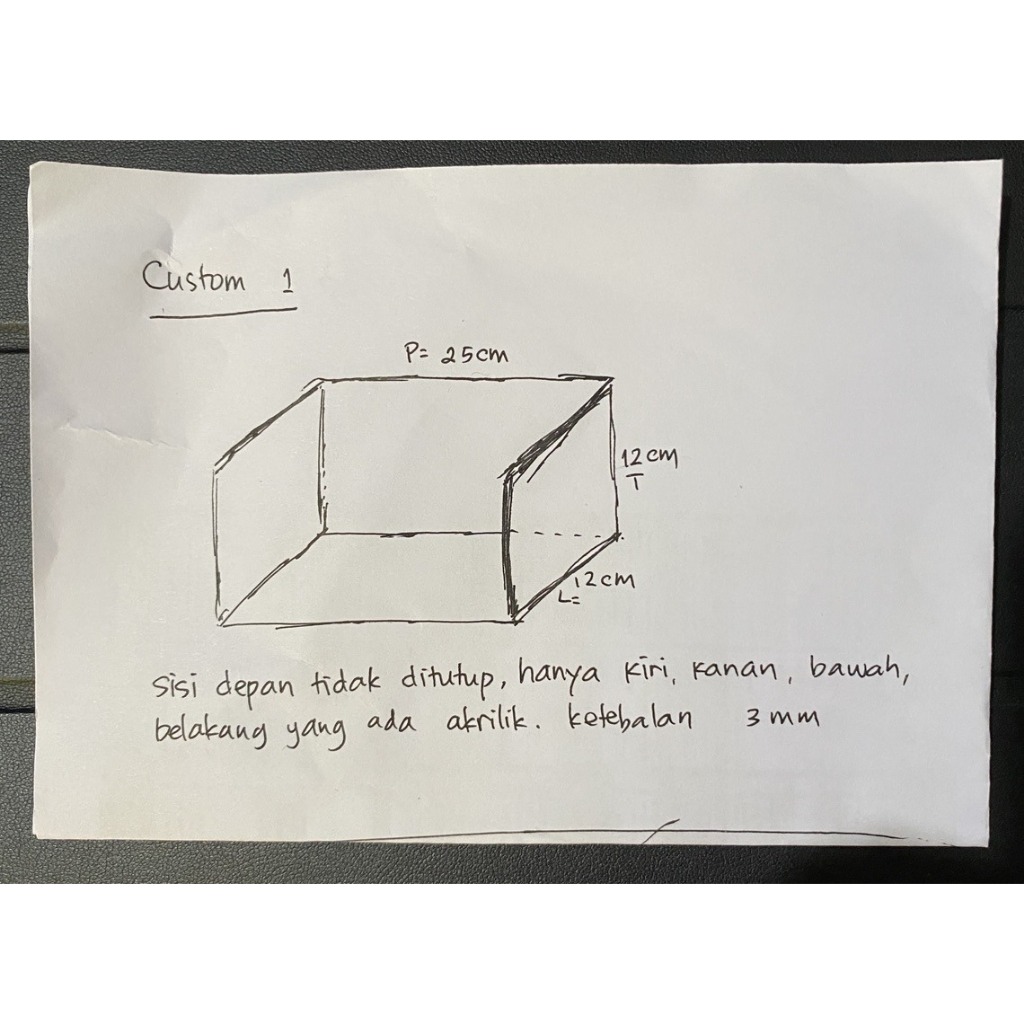 Custom 1
P= 25cm
12cm
T
12cm
L=
sisi depan tidak ditutup, hanya kiri, kanan, bawah,
belakang yang ada akrilik. ketebalan 3 mm